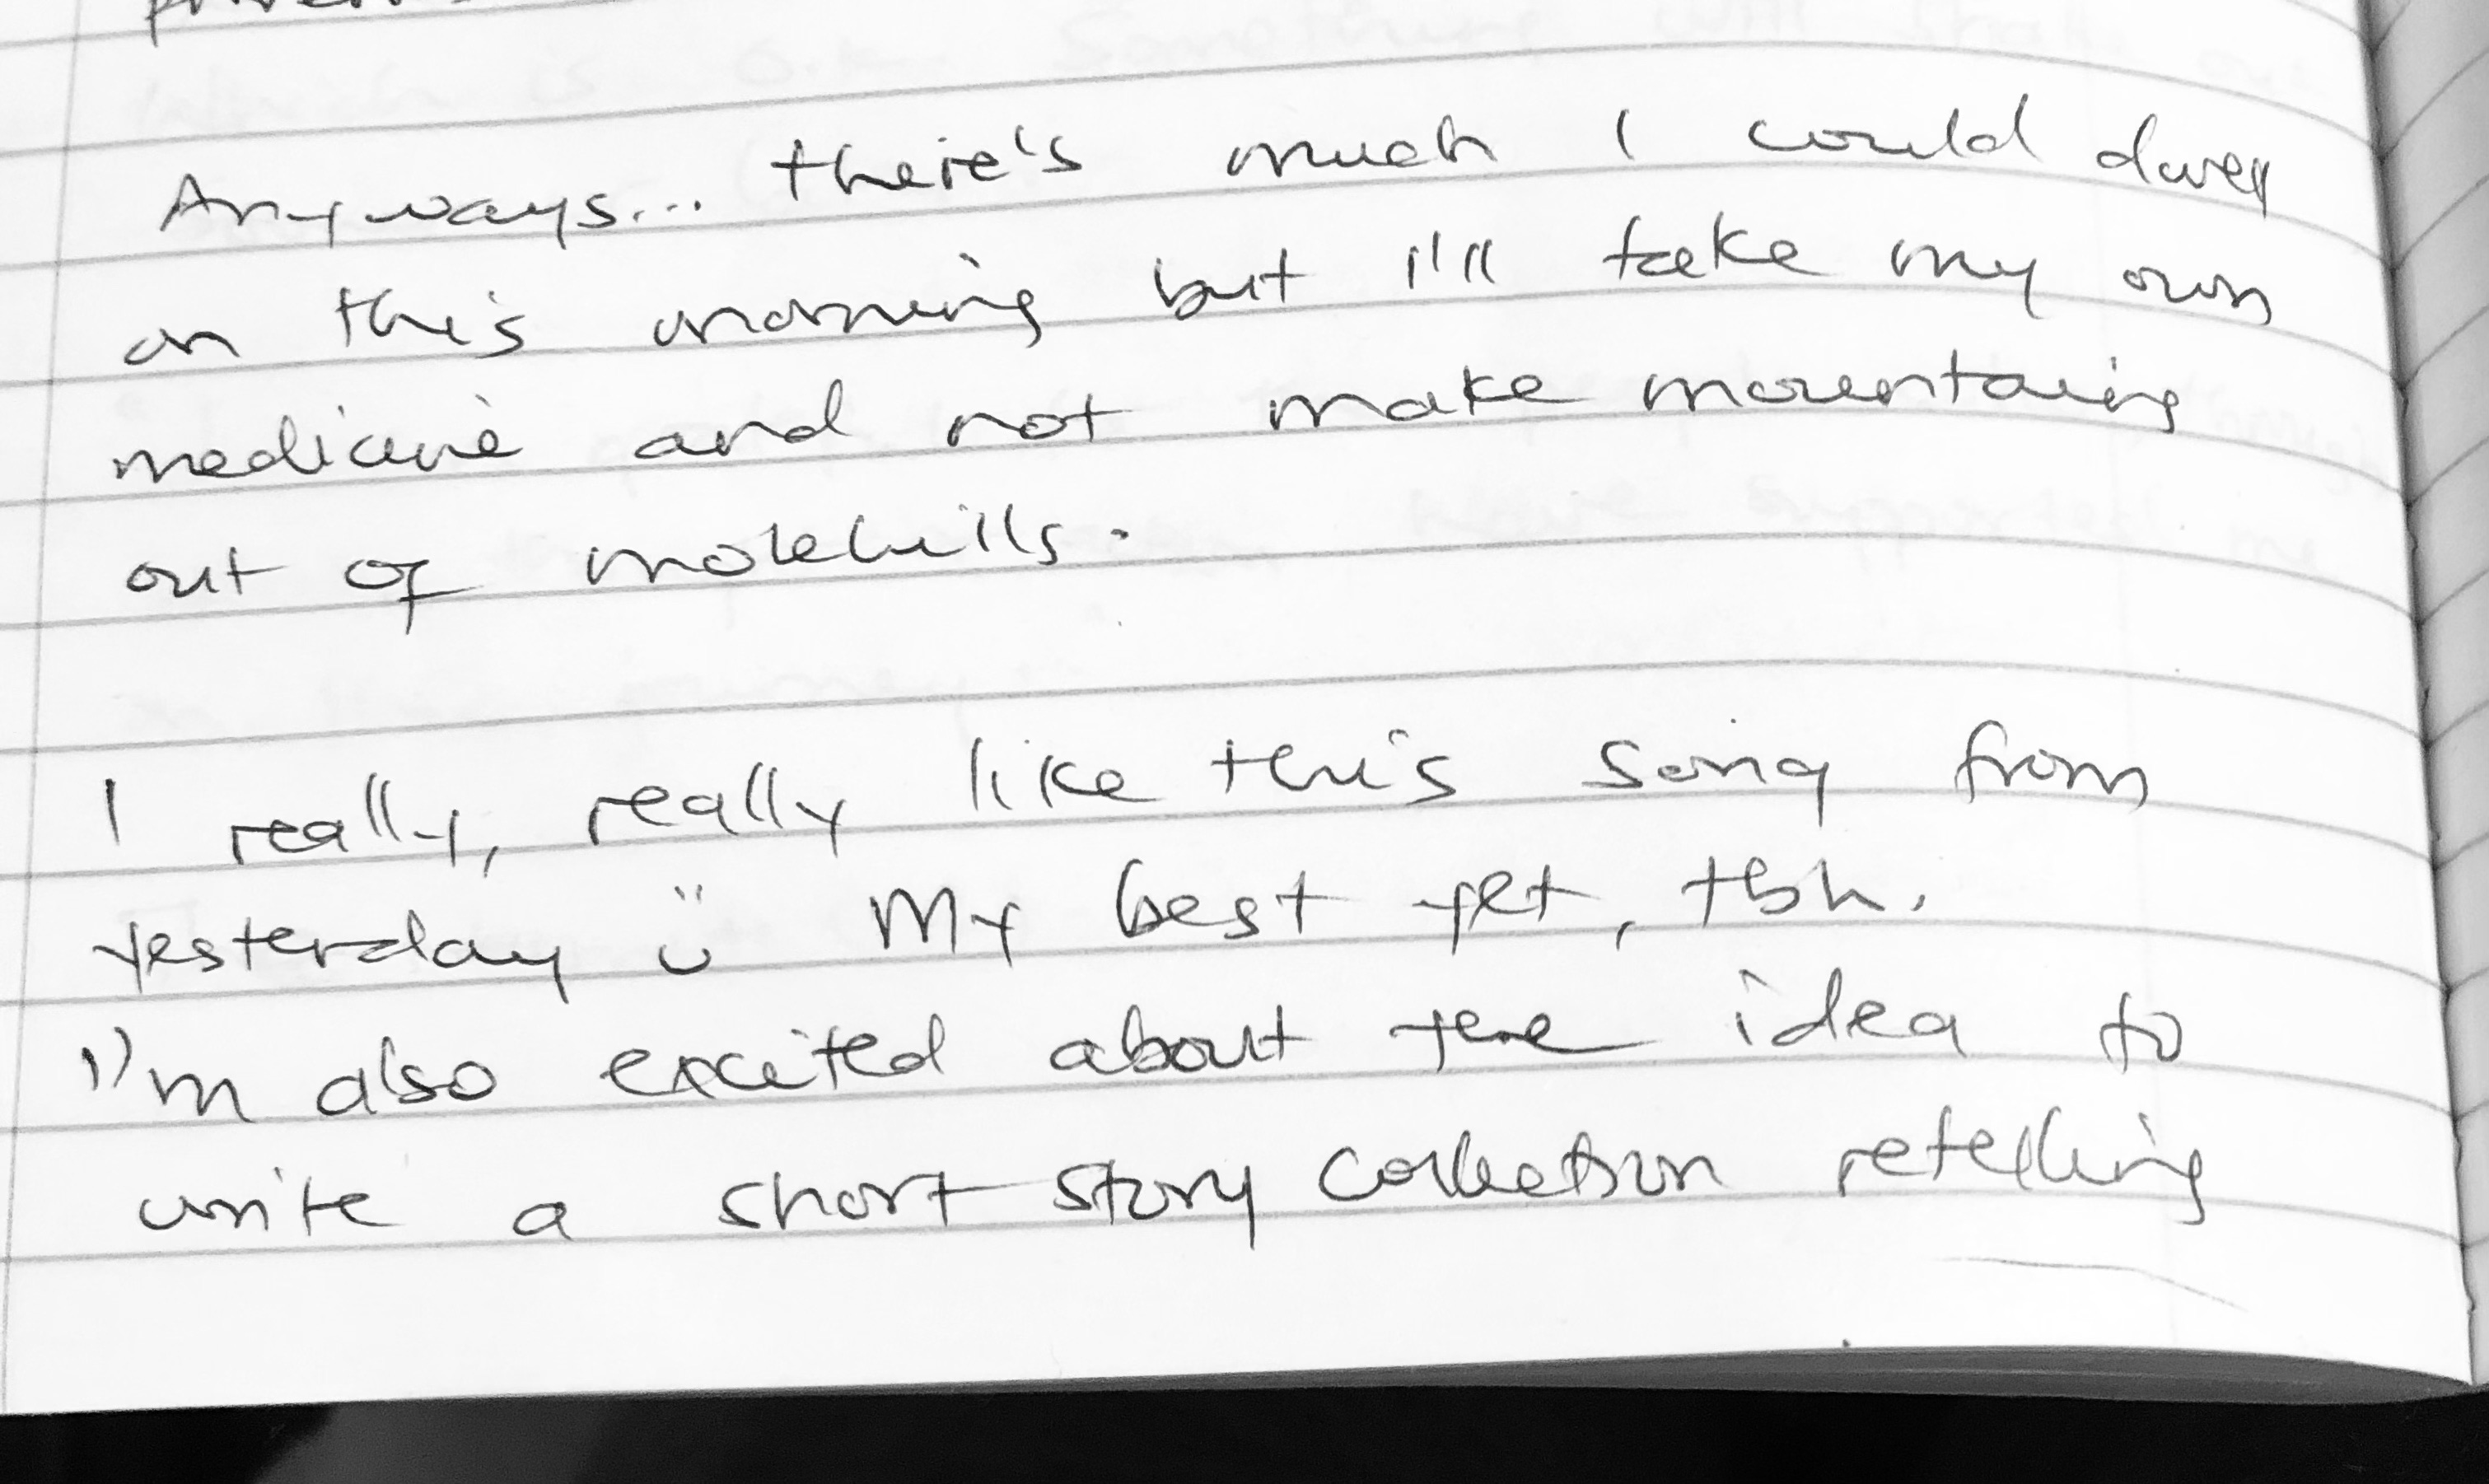 Anyways... there's much I could dwell
on this morning but I'll take my own
medicine and not make mountains
out of molehills.
I really, really like this song from
yesterday ü My best yet, tbh.
I'm also excited about the idea to
write a short story collection retelling